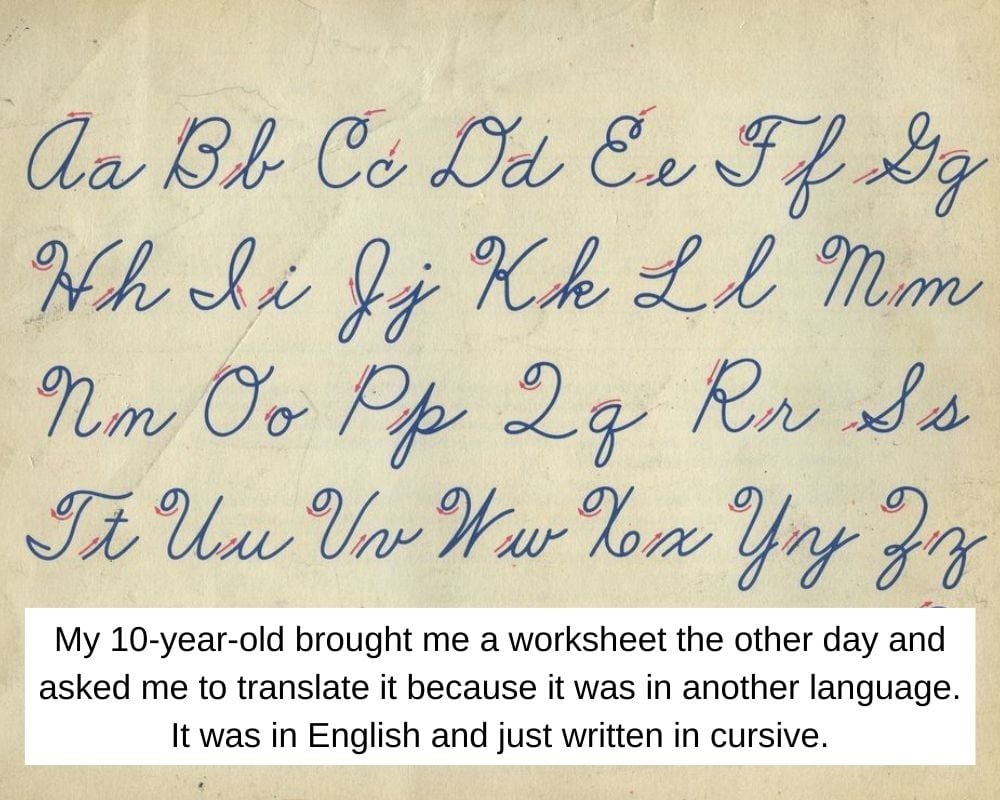 Aa Bb Cc Dd Ee Ff Gg
Hh Ii Jj Kk Ll Mm
Nn Oo Pp Qq Rr Ss
Tt Uu Vv Ww Xx Yy Zz
My 10-year-old brought me a worksheet the other day and
asked me to translate it because it was in another language.
It was in English and just written in cursive.